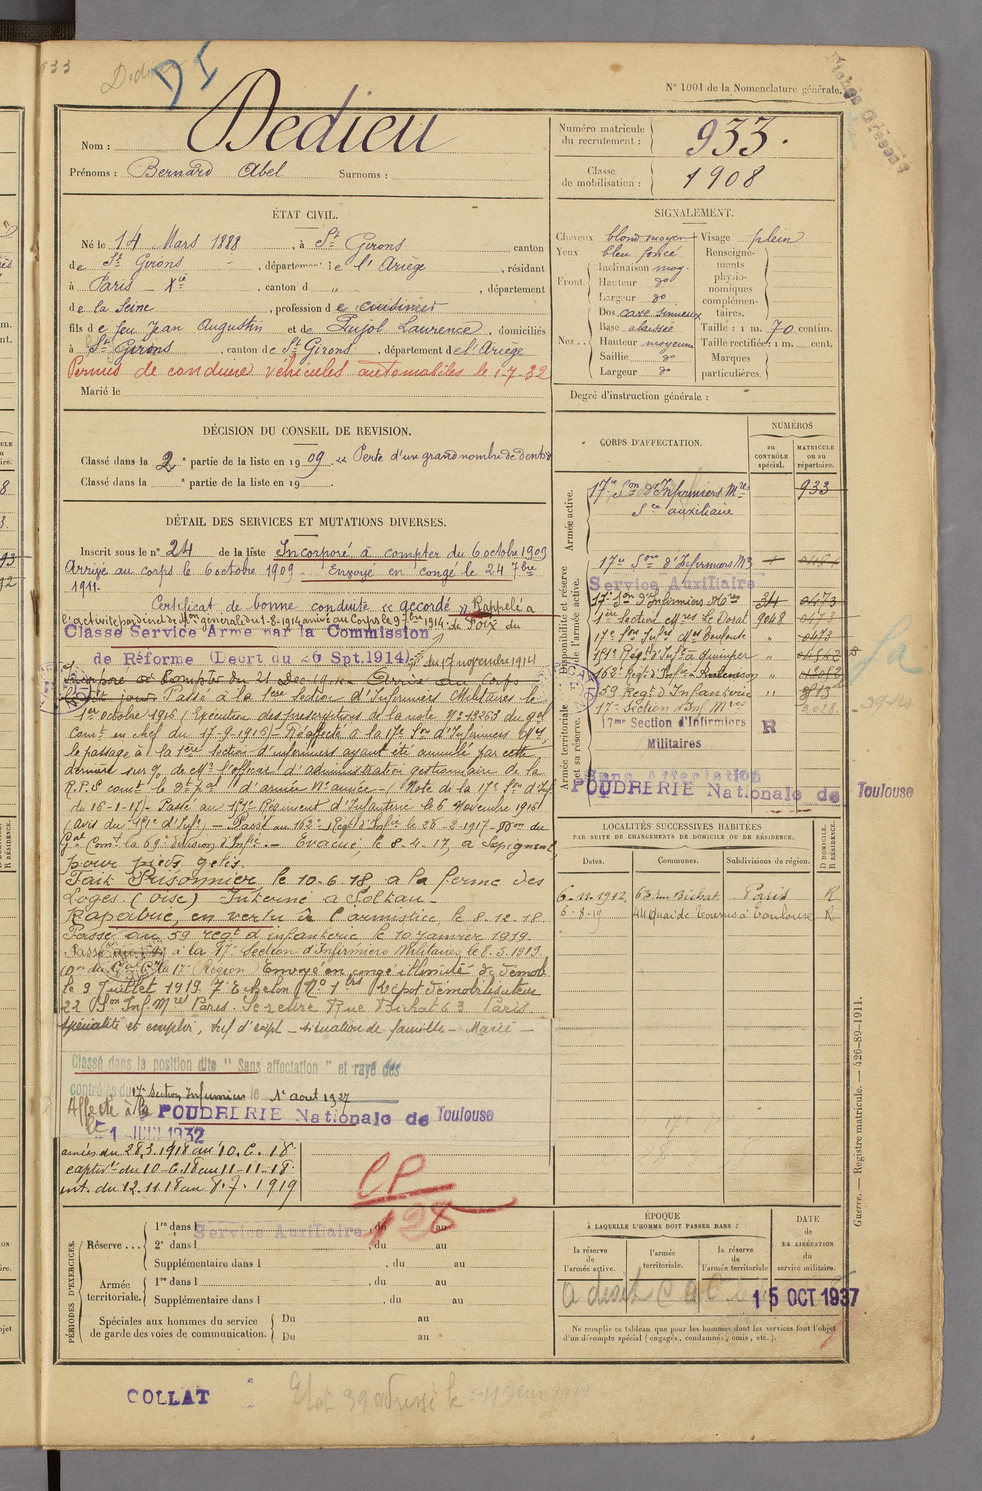 933
DI
N° 1001 de la Nomenclature générale.
Nom : Dedieu
Prénoms : Bernard Abel Surnoms :
Numéro matricule du recrutement : 933.
Classe de mobilisation : 1908
ÉTAT CIVIL.
Né le 14 Mars 1888, à St Girons canton
de St Girons, département de l'Ariège, résidant
à Paris – Xe, canton d „, département
de la Seine, profession de cuisinier
fils de feu Jean Augustin et de Pujol Laurence, domiciliés
à St Girons, canton de St Girons, département de l'Ariège
Permis de conduire véhicules automobiles le 1-7-32
Marié le
SIGNALEMENT.
Cheveux blond moyen
Yeux bleu foncé
Front. Inclinaison moy.
Hauteur do
Largeur do
Nez. Dos cave sinueux
Base abaissée
Hauteur moyenne
Saillie do
Largeur do
Visage plein
Renseignements physionomiques complémentaires.
Taille : 1 m. 70 centim.
Taille rectifiée : 1 m. cent.
Marques particulières.
Degré d'instruction générale :
DÉCISION DU CONSEIL DE REVISION.
Classé dans la 2e partie de la liste en 1909. « Perte d'un grand nombre de dents
Classé dans la e partie de la liste en 19
DÉTAIL DES SERVICES ET MUTATIONS DIVERSES.
Inscrit sous le n° 24 de la liste Incorporé à compter du 6 octobre 1909
Arrivé au corps le 6 octobre 1909 – Envoyé en congé le 24 7bre
1911.
Certificat de bonne conduite « accordé » Rappelé à
l'activité par décret de Mon générale du 1-8-1914 arrivé au Corps le 9 7bre 1914
Classé Service Armé par la Commission de Foix du
de Réforme (Décrt du 26 Spt.1914) du 17 novembre 1914
Passé à la 1ère Section d'Infirmiers Militaires le
1er octobre 1916 (Exécution des prescriptions de la note n° 19263 du Gal
Comt en chef du 17-9-1916) – Réaffecté à la 17e Son d'Infirmiers Mres,
le passage à la 1ère section d'infirmiers ayant été annulé par cette
dernière
de Mr l'officier d'administration gestionnaire de la
(Note de la 17e Son d'Inf
du 16-1-17 – Passé au 151e Régiment d'Infanterie le 6 Novembre 1916
(avis du 151e d'Infie) – Passé au 162e Regt d'Infie le 26-2-1917 –
Gal Comt la 69e division d'Infie – Evacué, le 8-4-17, à Sapigneul,
pour pieds gelés.
Fait Prisonnier le 10-6-18, à la ferme des
Loges (Oise) Interné à Soltau –
Rapatrié, en vertu de l'armistice, le 8-12-18
Passé au 59 regt d'infanterie le 10 Janvier 1919.
Passé à la 17e Section d'Infirmiers Militaires le 8.5.1919.
(On du Gal Ct la 17e Région) Envoyé en congé illimité de démob
le 9 Juillet 1919 7e Echelon No 1 bis Dépot démobilisateur
22 Son Inf. Mres Paris. Se retire Rue Bichat 63 Paris
Spécialité et emploi, – situation de famille – Marié –
Classé dans la position dite " Sans affectation " et rayé des
contrôles du 17e Section Infirmiers le 1er Aout 1927
Affecté à la POUDRERIE Nationale de Toulouse
le 1 JUIN 1932
armées du 28.3.1918 au 10.6.18
captivité du 10-6-18 au 11-11-18
int. du 12.11.18 au 8.7.1919
CP
128
CORPS D'AFFECTATION.
NUMÉROS
au CONTRÔLE spécial.
MATRICULE ou au répertoire.
Armée active.
17e Son d'Infirmiers Mres 933
Sce auxiliaire
Disponibilité et réserve de l'armée active.
17e Son d'Infirmiers M
Service Auxiliaire
17e Son d'Infirmiers Mres 314 0473
1ère Section Mres Le Dorat 9048 0473
17e Son Infers Mres Toulouse „ 0473
151e Régt d'Inf à Quimper „
162e Régt d'Infie à „
59 Regt d'Infanterie „
Armée territoriale et sa réserve.
17e Section d'Inf Mres
17me Section d'Infirmiers R
Militaires
Sans Affectation
POUDRERIE Nationale de Toulouse
LOCALITÉS SUCCESSIVES HABITÉES
PAR SUITE DE CHANGEMENTS DE DOMICILE OU DE RÉSIDENCE.
Dates. Communes. Subdivisions de région. D DOMICILE. R RÉSIDENCE.
6-11-1912 63 rue Bichat Paris R
6-8-19 44 Quai de Tounis à Toulouse R
PÉRIODES D'EXERCICES.
Réserve... 1re dans l Service Auxiliaire, du au
2e dans l, du au
Supplémentaire dans l, du au
Armée territoriale. 1re dans l, du au
Supplémentaire dans l, du au
Spéciales aux hommes du service de garde des voies de communication. Du au
Du au
ÉPOQUE
À LAQUELLE L'HOMME DOIT PASSER DANS :
la réserve de l'armée active.
l'armée territoriale.
la réserve de l'armée territoriale
DATE de LA LIBÉRATION du service militaire.
a droit C a C
15 OCT 1937
Ne remplir ce tableau que pour les hommes dont les services font l'objet d'un décompte spécial (engagés, condamnés, omis, etc.).
Guerre. — Registre matricule. — 426-89-1911.
COLLAT
Etat 39 adressé le 11 Juin 1919